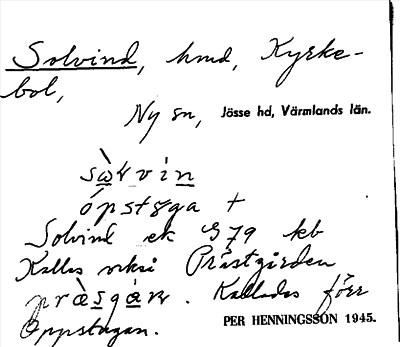 Solvind, hmd, Kyrke-
bol,
Ny sn, Jösse hd, Värmlands län.
sòlvín
ópstøga +
Solvind ek G 79 kb
Kallas också Prästgården
pràsgáɳ. Kallades förr
Oppstugan.
PER HENNINGSSON 1945.